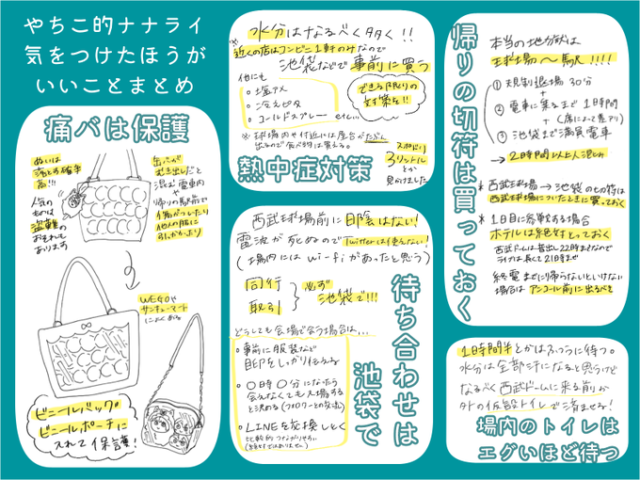 やちこ的ナナライ
気をつけたほうが
いいことまとめ
痛バは保護
ぬいは
落とす確率
高!!!
人気の
ものは
盗難の
おそれも
あります
缶バが
むき出しだと
混む電車内や
帰りの駅前で
傷がついたり
他人の服に
引っかかったり
WEGOや
サンキューマート
ビニールバッグ
ビニールポーチに
入れて保護!
水分はなるべく多く!!
近くの店はコンビニ1軒のみなので
池袋などで事前に買う
他にも
塩アメ
冷えピタ
コールドスプレー etc...
できる限りの
対策を!!
※球場内や付近には屋台がたぶん
出るので食べ物は買える。
スポドリ
3リットル
とか
熱中症対策
西武球場前に日陰はない!
電波が死ぬのでTwitterは使えない!
(場内にはwi-fiがあったと思う)
同行
取引
必ず
池袋で!!!
どうしても会場で会う場合は...
事前に服装など
目印をしっかり伝える
○時○分になったら
会えなくても入場する
と決める
LINEを交換しとく
待ち合わせは
池袋で
帰りの切符は買っておく
本当の地方獄は
球場〜駅!!!!
① 規制退場 30分
+
② 電車に乗るまで 1時間
+
③ 池袋まで満員電車
→ 2時間以上人混み
*西武球場→池袋のものは
西武球場についたときに買っておく
*1日目に参戦する場合
ホテルは絶対とっておく
西武ドームは音出し22時までなので
ライブは長くて21時まで
終電までに帰らないといけない
場合はアンコール前に出るべき
1時間半とかはふつうに待つ。
水分は全部汗になると思うけど
なるべく西武ドームに来る前か
外の仮設トイレで済ませな!
場内のトイレは
エグいほど待つ